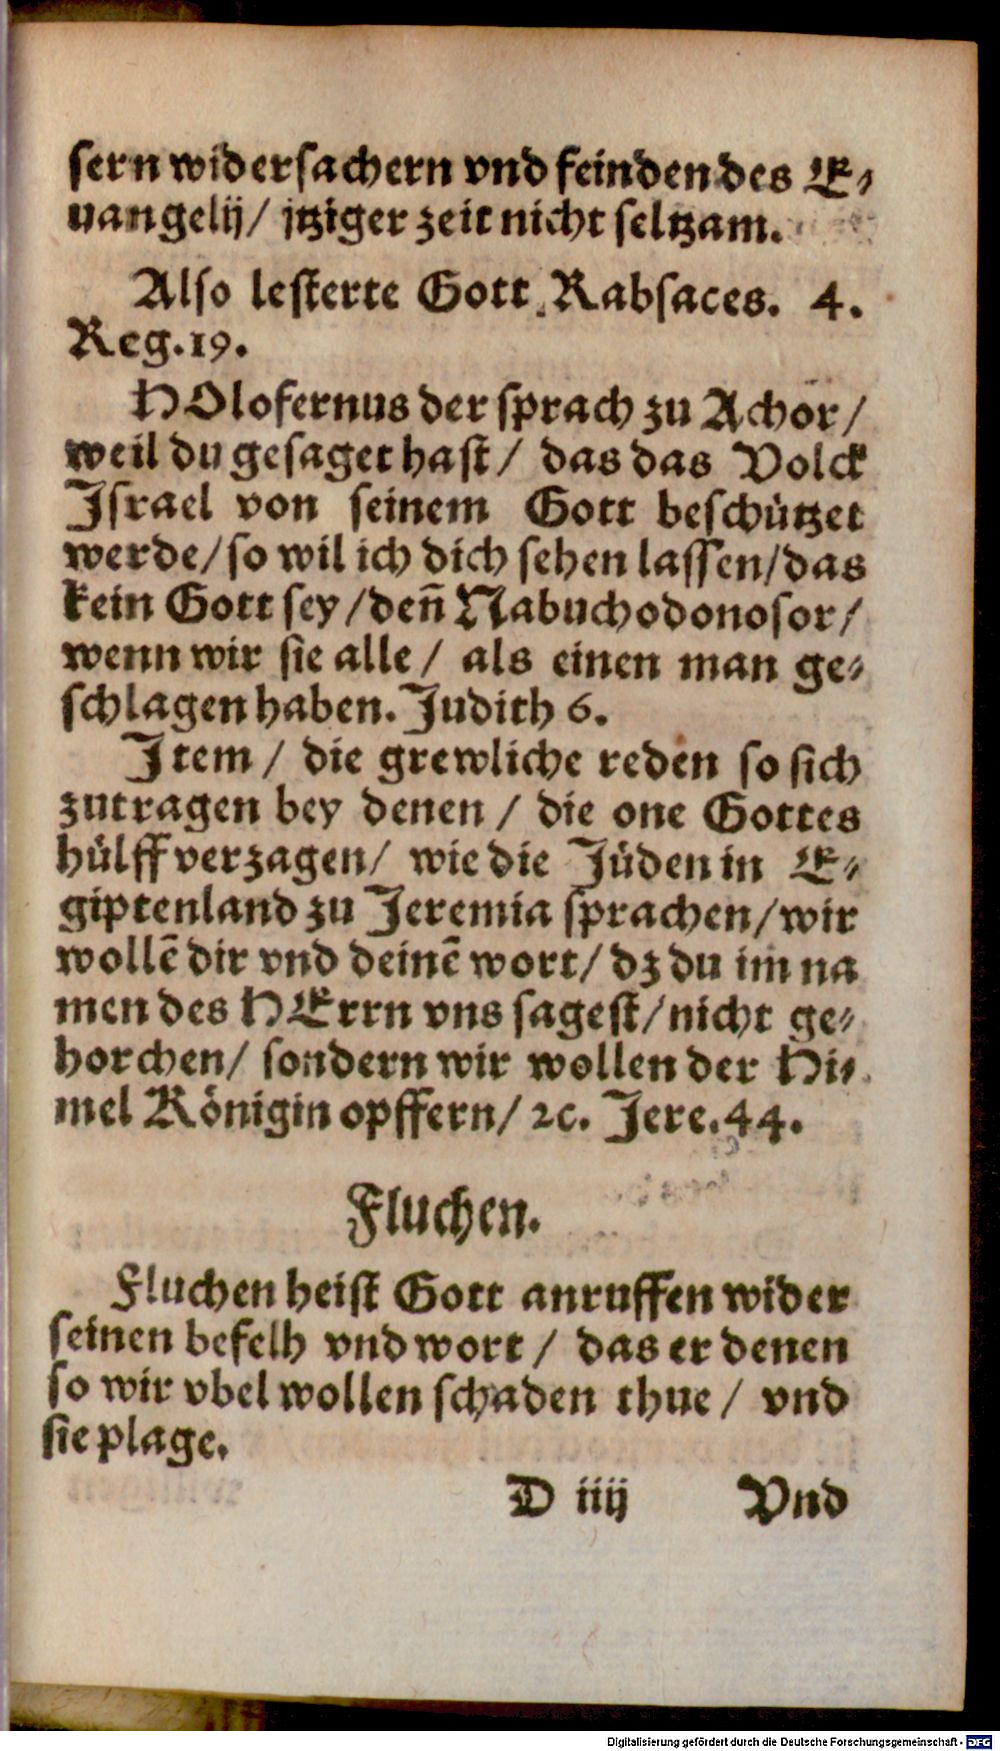 sern widersachern vnd feinden des E⸗
uangelij/ jtziger zeit nicht seltzam.
Also lesterte Gott Rabsaces. 4.
Reg.19.
HOlofernus der sprach zu Achor/
weil du gesaget hast/ das das Volck
Israel von seinem Gott beschützet
werde/so wil ich dich sehen lassen/das
kein Gott sey/deñ Nabuchodonosor/
wenn wir sie alle/ als einen man ge⸗
schlagen haben. Judith 6.
Item/ die grewliche reden so sich
zutragen bey denen/ die one Gottes
hülff verzagen/ wie die Jüden in E⸗
giptenland zu Jeremia sprachen/wir
wollẽ dir vnd deinẽ wort/ dz du im na
men des HErrn vns sagest/nicht ge⸗
horchen/ sondern wir wollen der Hi⸗
mel Königin opffern/ ꝛc. Jere.44.
Fluchen.
Fluchen heist Gott anruffen wider
seinen befelh vnd wort/ das er denen
so wir vbel wollen schaden thue/ vnd
sie plage.
D iiij Vnd
Digitalisierung gefördert durch die Deutsche Forschungsgemeinschaft - DFG